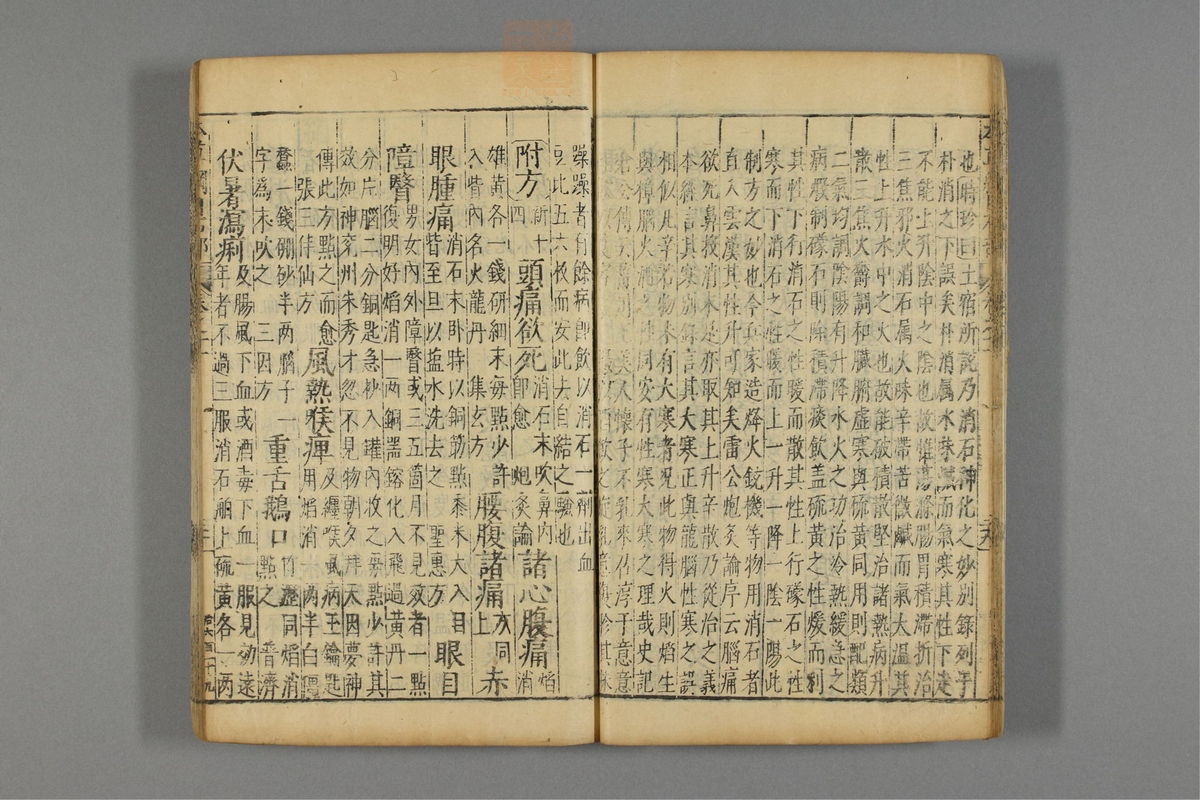 也時珍曰土宿所說乃消石神化之妙別錄列于
朴消之下誤矣朴消屬水味鹹而氣寒其性下走
不能上升陰中之陰也故惟蕩滌腸胃積滯折治
三焦邪火消石屬火味辛帶苦微鹹而氣大溫其
性上升水中之火也故能破積散堅治諸熱病升
散三焦火鬱調和臟腑虛寒與硫黃同用則配類
二氣均調陰陽有升降水火之功治冷熱緩急之
病煅制礞石則除積滯痰飲蓋硫黃之性煖而利
其性下行消石之性暖而散其性上行礞石之性
寒而下消石之性暖而上一升一降一陰一陽此
制方之妙也今兵家造烽火銃機等物用消石者
直入雲漢其性升可知矣雷公炮炙論序云腦痛
欲死鼻投消末是亦取其上升辛散乃從治之義
本經言其寒別錄言其大寒正與龍腦性寒之誤
相似凡辛苦物未有大寒者況此物得火則焰生
與樟腦火酒之性同安有性寒大寒之理哉史記
倉公傳云菑川王美人懷子不乳來召淳于意意
以酒飲之旋乳意復診其脉
躁躁者有餘病即飲以消石一劑出血
豆比五六枚而安此去血結之驗也
附方新十四頭痛欲死消石末吹鼻內即愈炮炙論諸心腹痛焰消
雄黃各一錢研細末每點少許入眥內名火龍丹集玄方腰腹諸痛方同上赤
眼腫痛消石末卧時以銅筯點黍米大入目眥至旦以盐水洗去之聖惠方眼目
障瞖男女內外障瞖或三五箇月不見效者一點復明好焰消一兩銅器鎔化入飛過黃丹二
分片腦二分銅匙急抄入罐內收之每點少許其效如神兗州朱秀才忽不見物朝夕拜天因夢神
傳此方點之而愈張三丰仙方風熱喉痺及纏喉風病玉鑰匙用焰消一兩半白殭
蠶一錢硼砂半兩腦子一字為末吹之三因方重舌鵝口竹瀝同焰消點之普濟
伏暑瀉痢及腸風下血或酒毒下血一服見効遠年者不過三服消石舶上硫黃各一兩